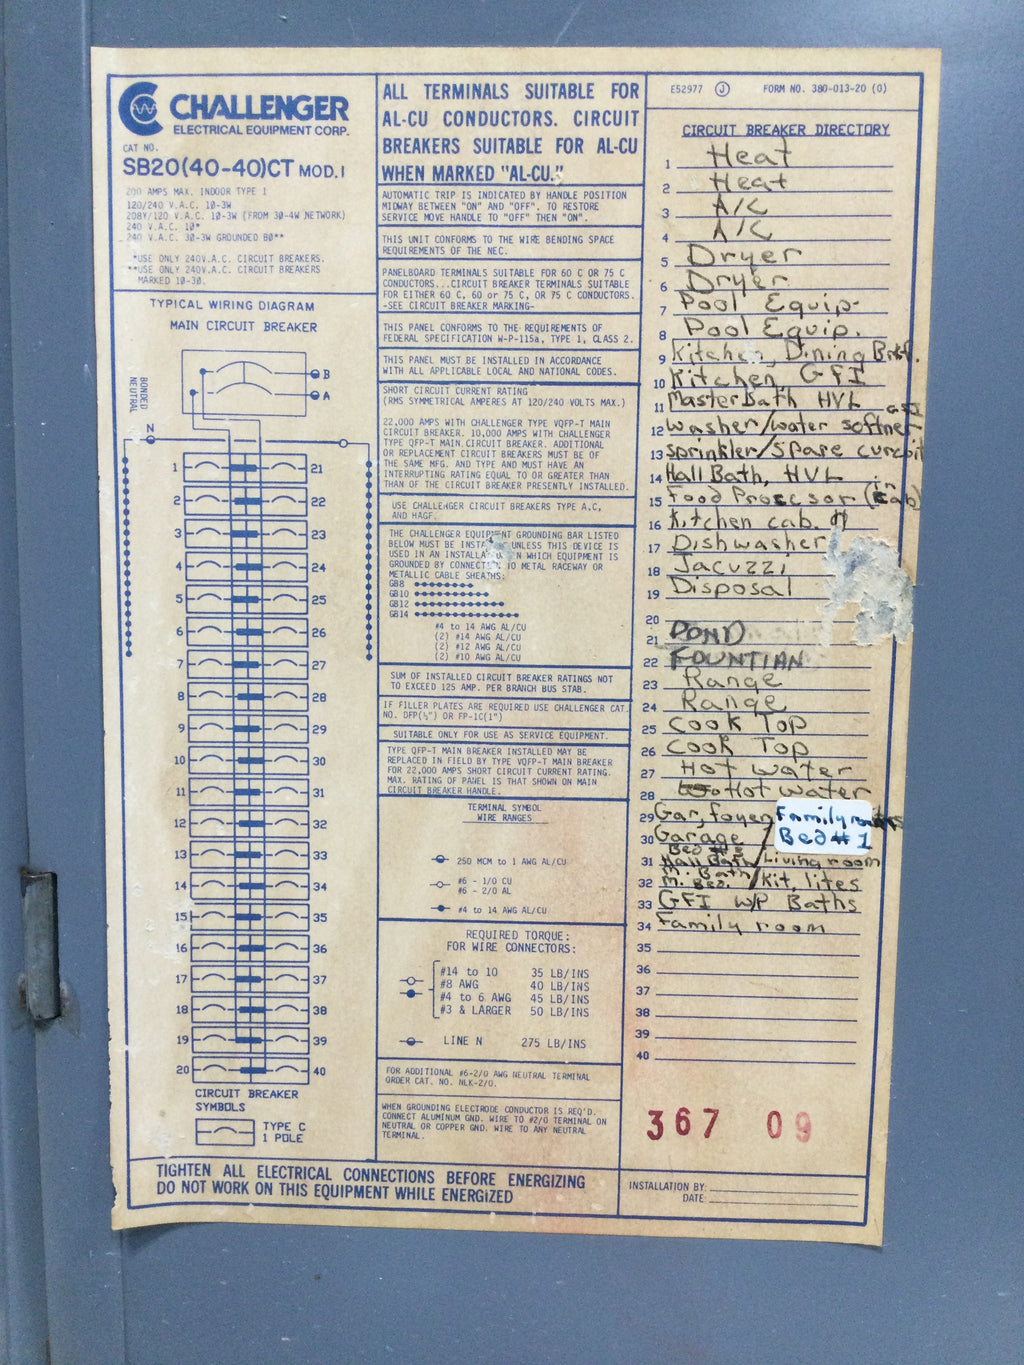 CHALLENGER
ELECTRICAL EQUIPMENT CORP.
CAT NO.
SB20(40-40)CT MOD.I
200 AMPS MAX. INDOOR TYPE 1
120/240 V.A.C. 10-3W
208Y/120 V.A.C. 10-3W (FROM 30-4W NETWORK)
240 V.A.C. 10*
240 V.A.C. 30-3W GROUNDED B0**
*USE ONLY 240V.A.C. CIRCUIT BREAKERS.
**USE ONLY 240V.A.C. CIRCUIT BREAKERS
MARKED 10-30.
TYPICAL WIRING DIAGRAM
MAIN CIRCUIT BREAKER
BONDED
NEUTRAL
B
A
N
1 21
2 22
3 23
4 24
5 25
6 26
7 27
8 28
9 29
10 30
11 31
12 32
13 33
14 34
15 35
16 36
17 37
18 38
19 39
20 40
CIRCUIT BREAKER
SYMBOLS
TYPE C
1 POLE
ALL TERMINALS SUITABLE FOR
AL-CU CONDUCTORS. CIRCUIT
BREAKERS SUITABLE FOR AL-CU
WHEN MARKED "AL-CU."
AUTOMATIC TRIP IS INDICATED BY HANDLE POSITION
MIDWAY BETWEEN "ON" AND "OFF". TO RESTORE
SERVICE MOVE HANDLE TO "OFF" THEN "ON".
THIS UNIT CONFORMS TO THE WIRE BENDING SPACE
REQUIREMENTS OF THE NEC.
PANELBOARD TERMINALS SUITABLE FOR 60 C OR 75 C
CONDUCTORS...CIRCUIT BREAKER TERMINALS SUITABLE
FOR EITHER 60 C, 60 or 75 C, OR 75 C CONDUCTORS.
-SEE CIRCUIT BREAKER MARKING-
THIS PANEL CONFORMS TO THE REQUIREMENTS OF
FEDERAL SPECIFICATION W-P-115a, TYPE 1, CLASS 2.
THIS PANEL MUST BE INSTALLED IN ACCORDANCE
WITH ALL APPLICABLE LOCAL AND NATIONAL CODES.
SHORT CIRCUIT CURRENT RATING
(RMS SYMMETRICAL AMPERES AT 120/240 VOLTS MAX.)
22,000 AMPS WITH CHALLENGER TYPE VQFP-T MAIN
CIRCUIT BREAKER. 10,000 AMPS WITH CHALLENGER
TYPE QFP-T MAIN CIRCUIT BREAKER. ADDITIONAL
OR REPLACEMENT CIRCUIT BREAKERS MUST BE OF
THE SAME MFG. AND TYPE AND MUST HAVE AN
INTERRUPTING RATING EQUAL TO OR GREATER THAN
THAN OF THE CIRCUIT BREAKER PRESENTLY INSTALLED.
USE CHALLENGER CIRCUIT BREAKERS TYPE A,C,
AND HAGF.
THE CHALLENGER EQUIPMENT GROUNDING BAR LISTED
BELOW MUST BE UNLESS THIS DEVICE IS
USED IN AN IN WHICH EQUIPMENT IS
GROUNDED BY TO METAL RACEWAY OR
METALLIC CABLE SHEATHS:
GB8
GB10
GB12
GB14
#4 to 14 AWG AL/CU
(2) #14 AWG AL/CU
(2) #12 AWG AL/CU
(2) #10 AWG AL/CU
SUM OF INSTALLED CIRCUIT BREAKER RATINGS NOT
TO EXCEED 125 AMP. PER BRANCH BUS STAB.
IF FILLER PLATES ARE REQUIRED USE CHALLENGER CAT.
NO. DFP(½") OR FP-1C(1")
SUITABLE ONLY FOR USE AS SERVICE EQUIPMENT.
TYPE QFP-T MAIN BREAKER INSTALLED MAY BE
REPLACED IN FIELD BY TYPE VQFP-T MAIN BREAKER
FOR 22,000 AMPS SHORT CIRCUIT CURRENT RATING.
MAX. RATING OF PANEL IS THAT SHOWN ON MAIN
CIRCUIT BREAKER HANDLE.
TERMINAL SYMBOL
WIRE RANGES
250 MCM to 1 AWG AL/CU
#6 - 1/0 CU
#6 - 2/0 AL
#4 to 14 AWG AL/CU
REQUIRED TORQUE:
FOR WIRE CONNECTORS:
#14 to 10 35 LB/INS
#8 AWG 40 LB/INS
#4 to 6 AWG 45 LB/INS
#3 & LARGER 50 LB/INS
LINE N 275 LB/INS
FOR ADDITIONAL #6-2/0 AWG NEUTRAL TERMINAL
ORDER CAT. NO. NLK-2/0.
WHEN GROUNDING ELECTRODE CONDUCTOR IS REQ'D.
CONNECT ALUMINUM GND. WIRE TO #2/0 TERMINAL ON
NEUTRAL OR COPPER GND. WIRE TO ANY NEUTRAL
TERMINAL.
E52977 J FORM NO. 380-013-20 (0)
CIRCUIT BREAKER DIRECTORY
1 Heat
2 Heat
3 A/C
4 A/C
5 Dryer
6 Dryer
7 Pool Equip.
8 Pool Equip.
9 Kitchen, Dining Brkf.
10 Kitchen, GFI
11 Master Bath HVL
12 washer/water softner
13 sprinkler/spare curcuit
14 Hall Bath, HVL
15 Food Procsor (in cab)
16 Kitchen cab.
17 Dishwasher
18 Jacuzzi
19 Disposal
20
21 POND
22 FOUNTIAN
23 Range
24 Range
25 Cook Top
26 Cook Top
27 Hot water
28 Hot water
29 Gar, foyer Family
30 Garage / Bed #1
Bed #
31 Hall Bath/Living room
M. Bath
32 M. Bed. / Kit, lites
33 GFI W/P Baths
34 Family room
35
36
37
38
39
40
367 09
TIGHTEN ALL ELECTRICAL CONNECTIONS BEFORE ENERGIZING
DO NOT WORK ON THIS EQUIPMENT WHILE ENERGIZED
INSTALLATION BY:
DATE